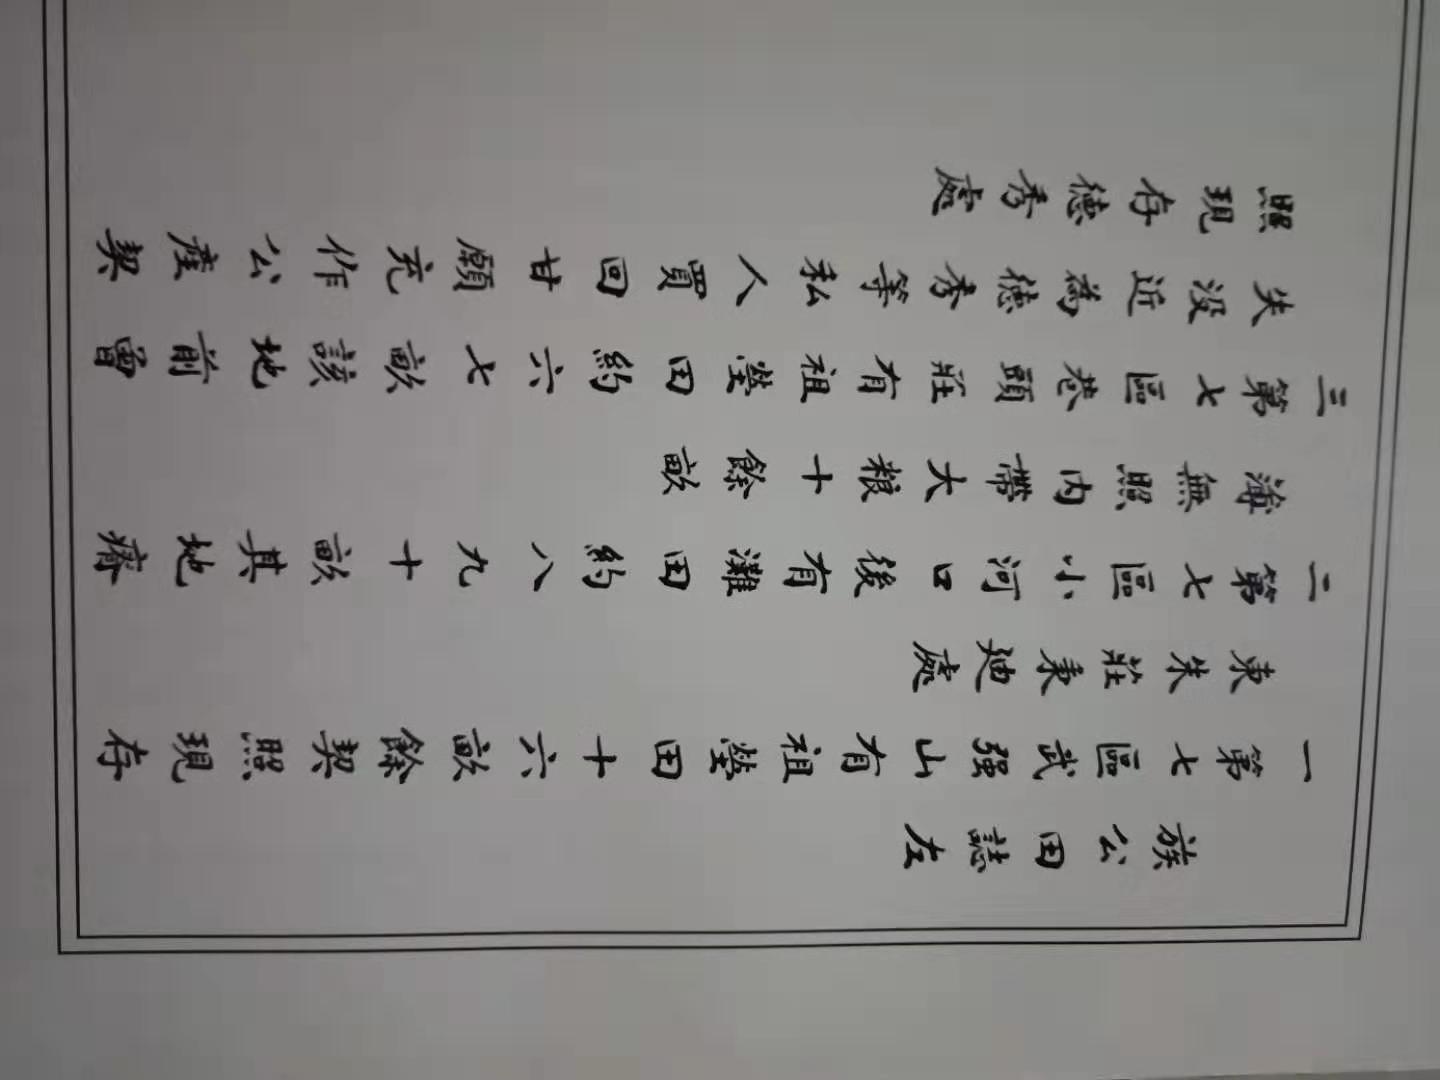 族公田誌左
一第七區武強山有祖塋田十六畝餘契照現存
東朱莊秉廸處
二第七區小河口後有灘田約八九十畝其地瘠
薄無照内帶大粮十餘畝
三第七區巷頭莊有祖塋田約六七畝該地前曾
失没近為德秀等私人買回甘願充作公產契
照現存德秀處